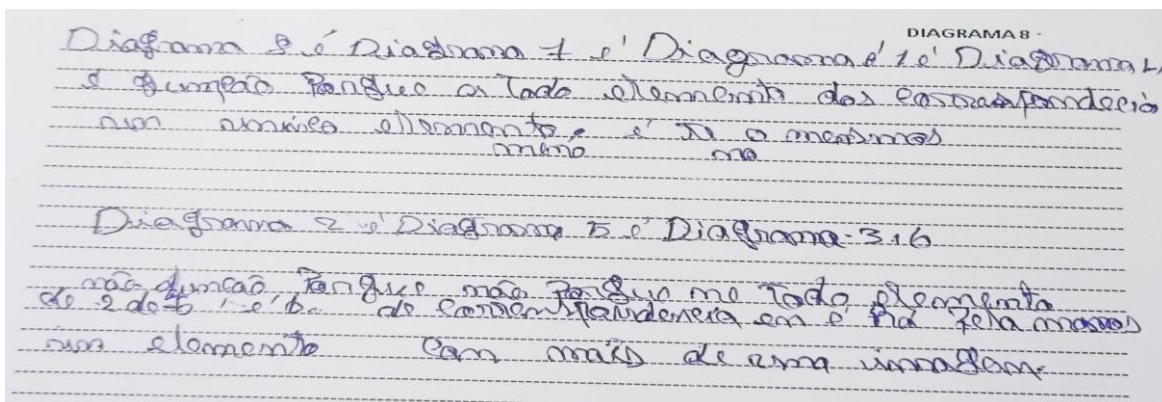 DIAGRAMA 8
Diagrama 8 é Diagrama 7 e' Diagrama é 1 é Diagrama 4,
é funcão Porque a Todo elemento dos correspondecia
num elemento e o mesmos
meno no
Diagrama 2 e' Diagrama 5 e' Diagrama 3.6
não funcão Porque não Porque no Todo elemento
de 2 de correspondencia em é há pela
num elemento com mais de uma imagem.